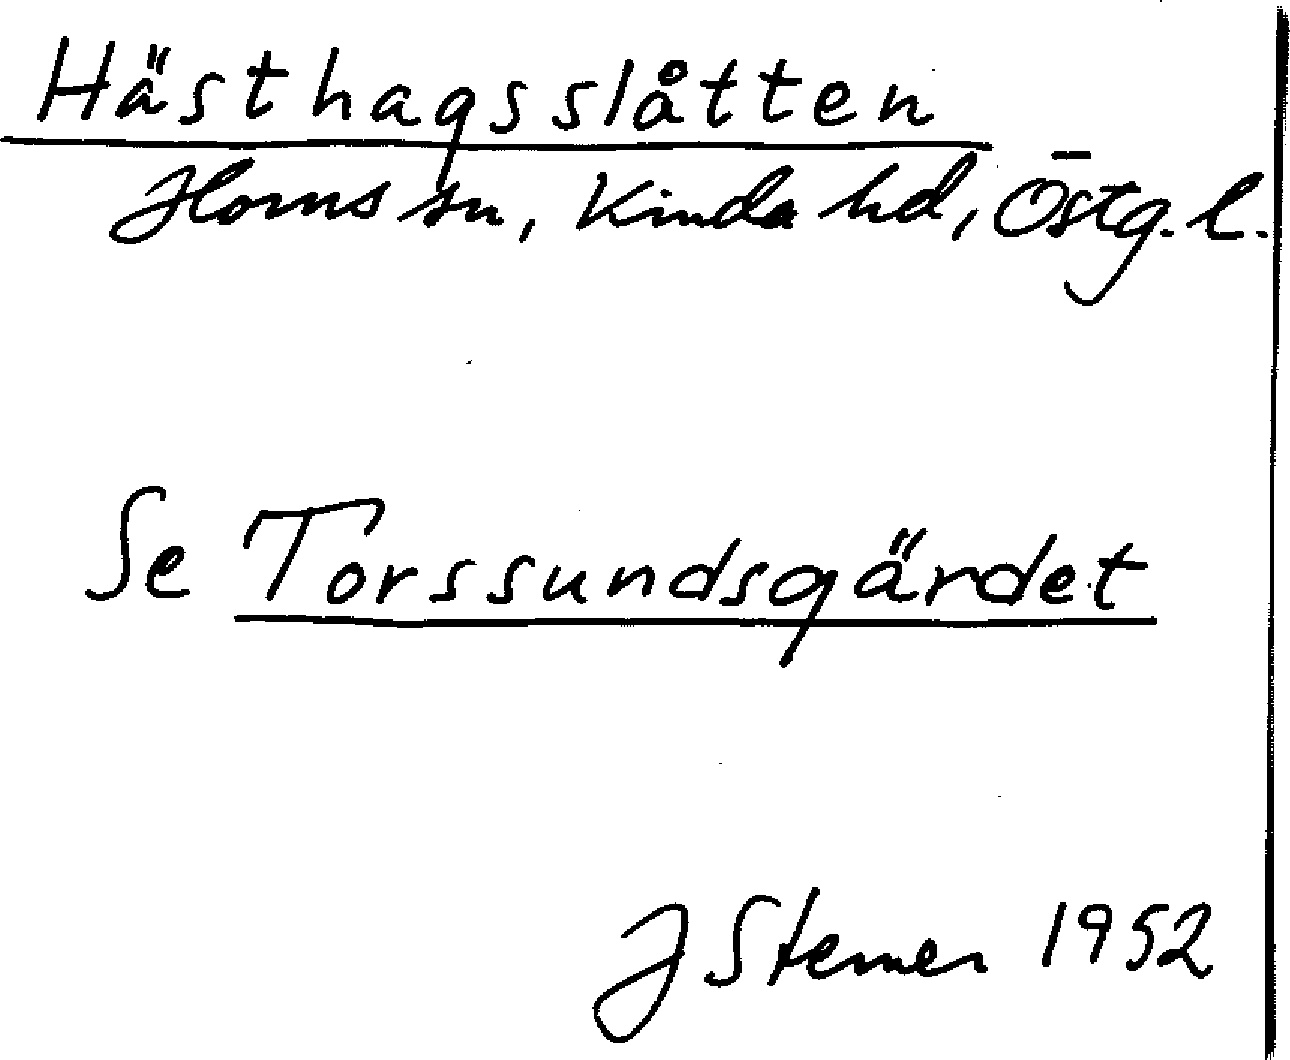 Hästhagsslåtten
Horns sn, Kinda hd, Östg. l.
Se Torssundsgärdet
J Sterner 1952